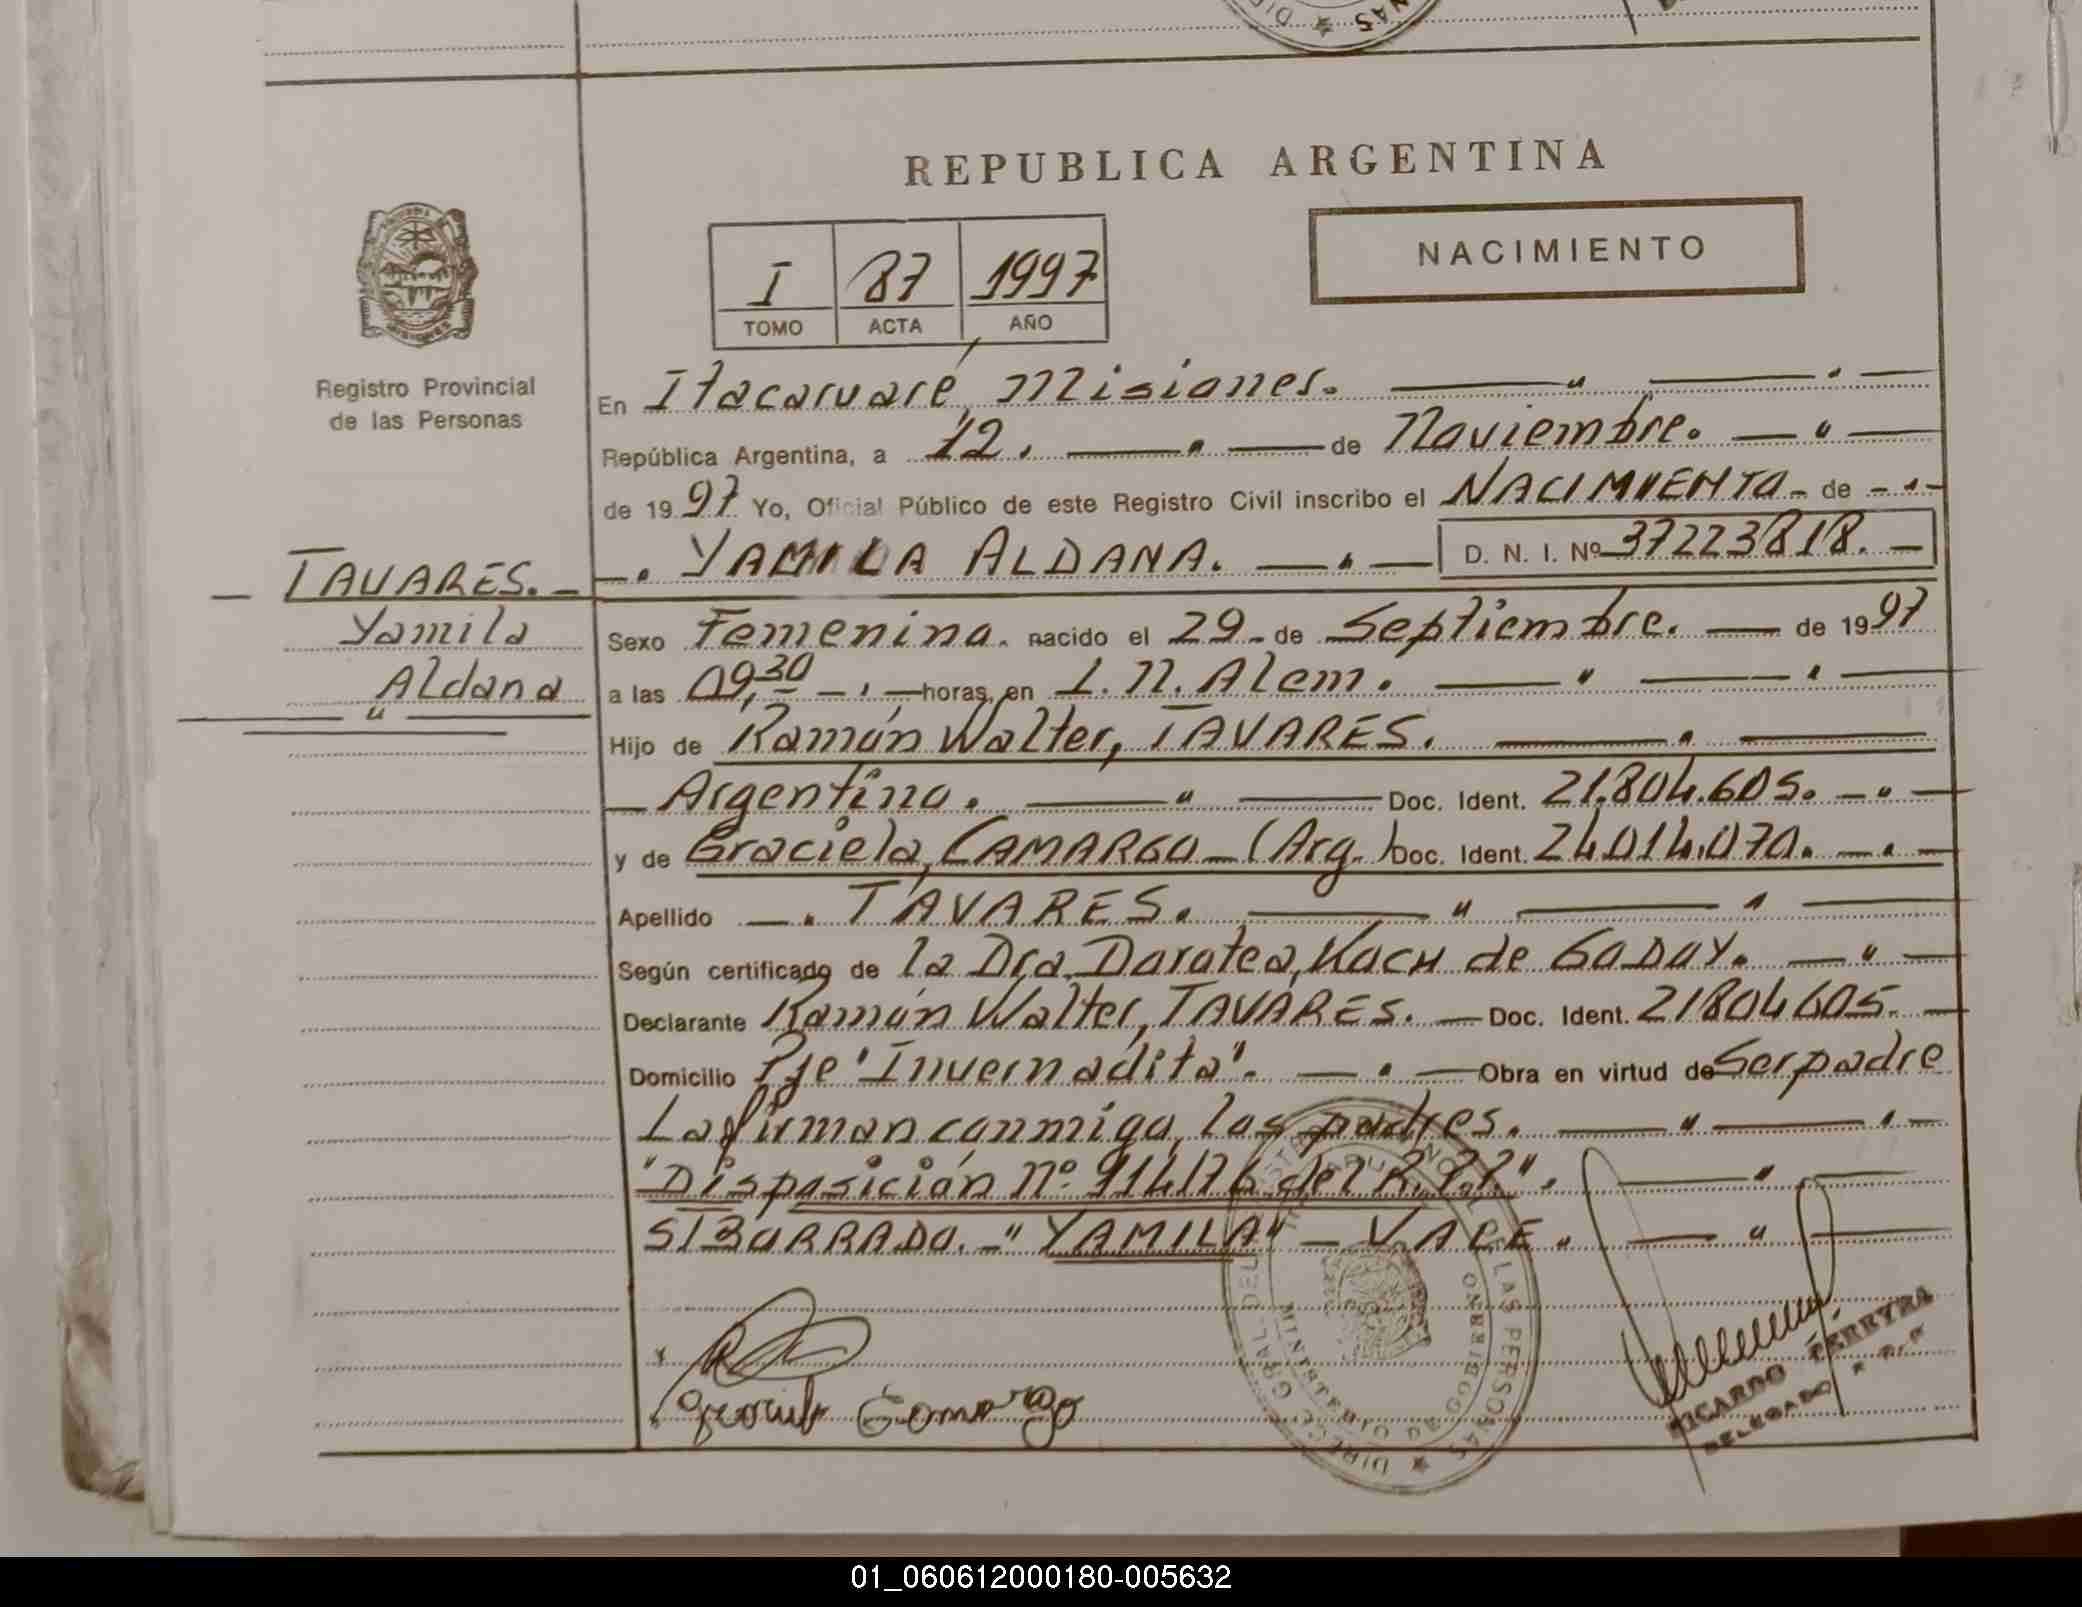 REPUBLICA ARGENTINA
NACIMIENTO
I 87 1997
TOMO ACTA AÑO
Registro Provincial
de las Personas
En Itacaruaré, Misiones.
República Argentina, a 12. de Noviembre.
de 1997 Yo, Oficial Público de este Registro Civil inscribo el NACIMIENTO de
YAMILA ALDANA. D. N. I. Nº 37223818.
TAVARES.
Yamila
Aldana
Sexo Femenino. nacido el 29 de Septiembre. de 1997
a las 09,30 horas, en L. N. Alem.
Hijo de Ramón Walter, TAVARES.
Argentino. Doc. Ident. 21.804.605.
y de Graciela, CAMARGO (Arg.) Doc. Ident. 24.014.070.
Apellido TAVARES.
Según certificado de la Dra. Dorotea, KOCH de GODOY.
Declarante Ramón Walter, TAVARES. Doc. Ident. 21804605.
Domicilio Pje "Invernadita". Obra en virtud de Ser padre
La firman conmigo, los padres.
"Disposición Nº 914/76 del R.P.P".
S/BORRADO. "YAMILA" VALE.
Graciela Camargo
DIRECC. GRAL. DEL LAS PERSONAS
MINISTERIO DE GOBIERNO
RICARDO FERREYRA
DELEGADO
01_060612000180-005632